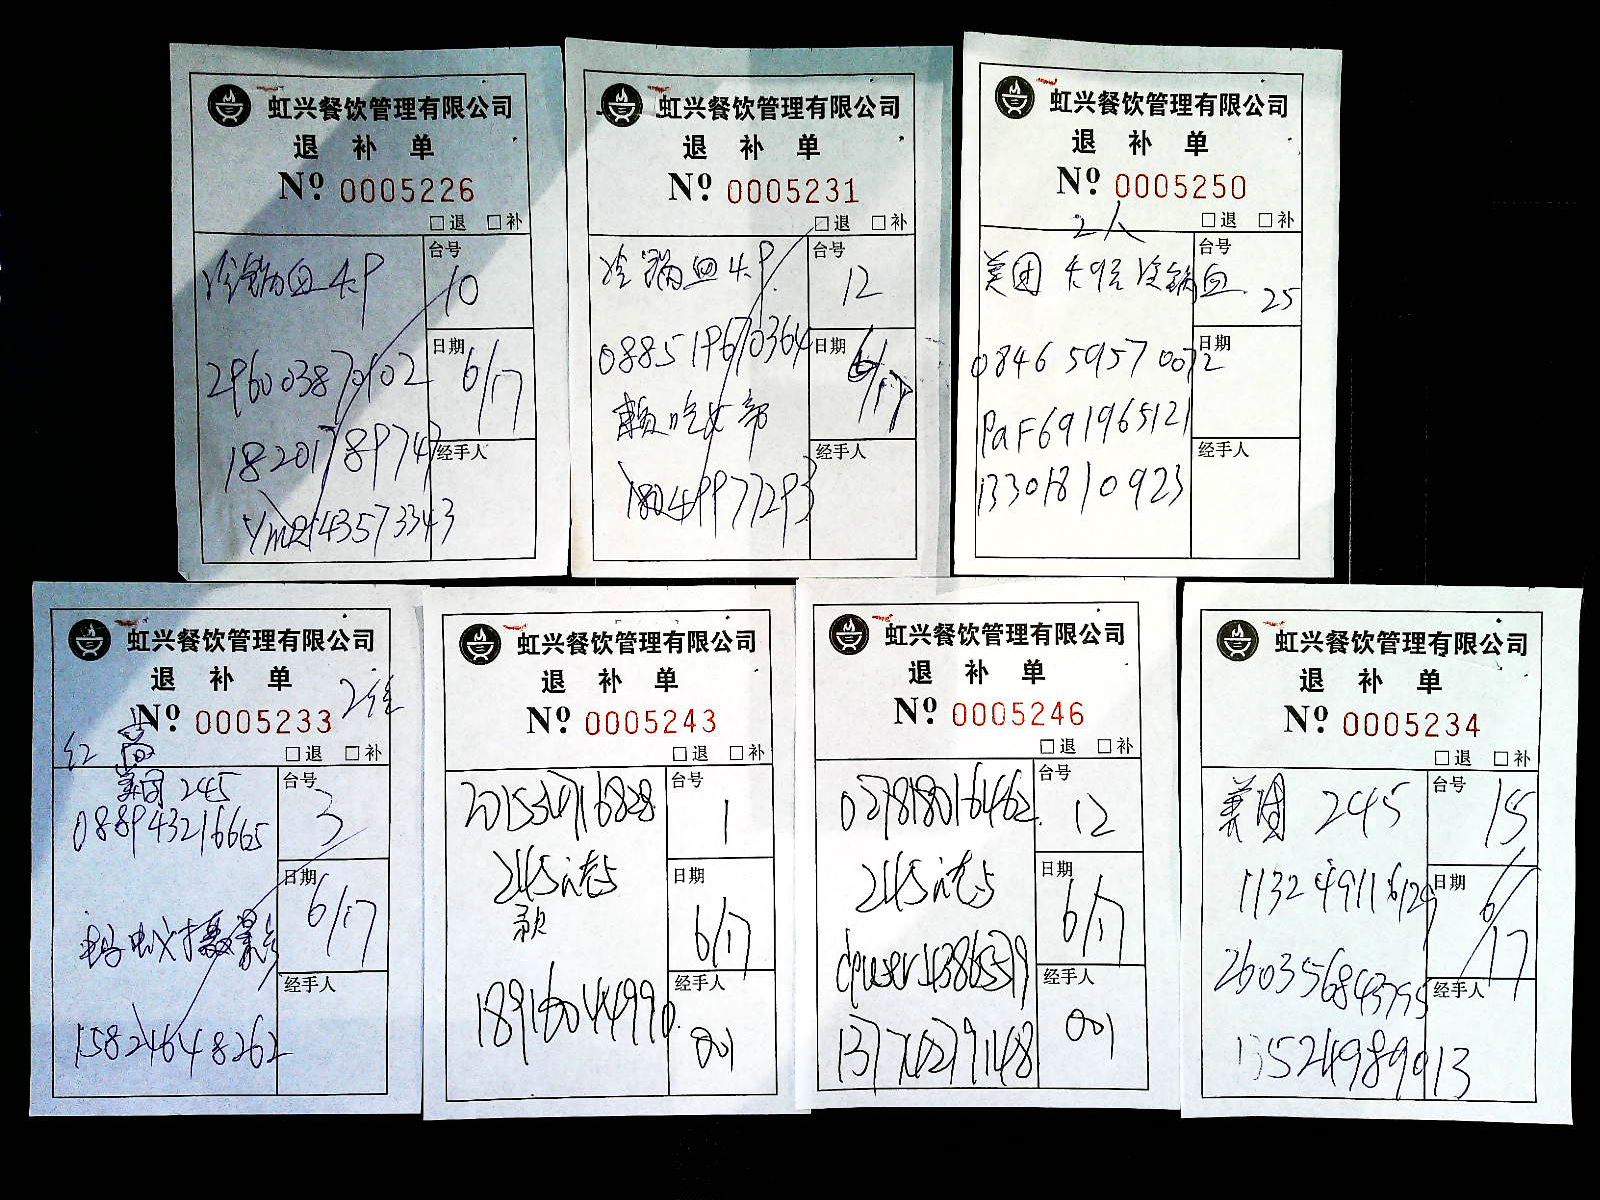 虹兴餐饮管理有限公司
退 补 单
Nº 0005226
□退 □补
冷锅血 4.9
台号
10
296003870102
日期
6/17
18201789747
经手人
Ym2143573343
虹兴餐饮管理有限公司
退 补 单
Nº 0005231
□退 □补
冷锅血 4.9
台号
12
088519670364
日期
6/17
18049977293
经手人
虹兴餐饮管理有限公司
退 补 单
Nº 0005250
□退 □补
2人
美团 冷锅血
台号
25
084659570072
日期
PaF691965121
经手人
13301810923
虹兴餐饮管理有限公司
退 补 单
Nº 0005233
□退 □补
美团 245
台号
3
088943216665
日期
6/17
经手人
15821648262
虹兴餐饮管理有限公司
退 补 单
Nº 0005243
□退 □补
台号
1
245
日期
6/17
经手人
18916044990
001
虹兴餐饮管理有限公司
退 补 单
Nº 0005246
□退 □补
台号
12
245
日期
6/17
经手人
001
虹兴餐饮管理有限公司
退 补 单
Nº 0005234
□退 □补
美团 245
台号
15
113249116129
日期
6/17
260356843795
经手人
13524989013